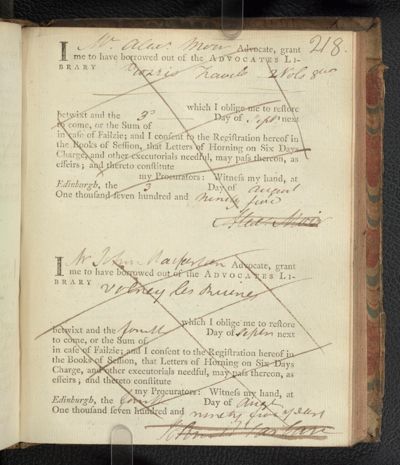 218.
I Mr. Alexr. Moir Advocate, grant
me to have borrowed out of the ADVOCATES LI-
BRARY Travels 2 Vols 8vo
which I oblige me to restore
betwixt and the 3d Day of Septr next
to come, or the Sum of
in case of Failzie; and I consent to the Registration hereof in
the Books of Session, that Letters of Horning on Six Days
Charge, and other executorials needful, may pass thereon, as
effeirs; and thereto constitute
my Procurators: Witness my hand, at
Edinburgh, the 3 Day of August
One thousand seven hundred and ninety five
Alex Moir
I Mr John Advocate, grant
me to have borrowed out of the ADVOCATES LI-
BRARY Volney les Ruines
which I oblige me to restore
betwixt and the fourth Day of Septem next
to come, or the Sum of
in case of Failzie; and I consent to the Registration hereof in
the Books of Session, that Letters of Horning on Six Days
Charge, and other executorials needful, may pass thereon, as
effeirs; and thereto constitute
my Procurators: Witness my hand, at
Edinburgh, the fourth Day of Augt
One thousand seven hundred and ninety five years